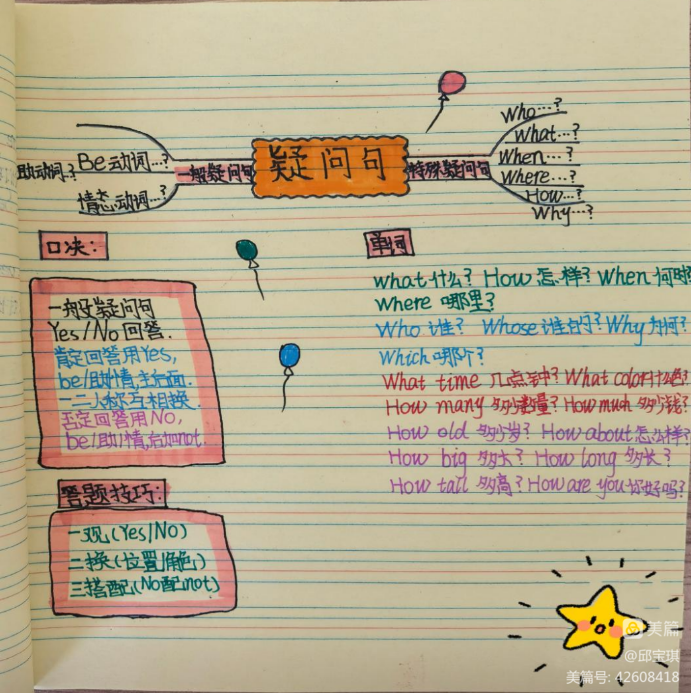 疑问句
一般疑问句
助动词..?
Be动词...?
情态动词...?
特殊疑问句
Who...?
What...?
When...?
Where...?
How...?
Why...?
口决:
一般疑问句
Yes/No回答.
肯定回答用Yes,
be/助/情,主后面.
一二人称互相换.
否定回答用No,
be/助/情后加not.
答题技巧:
一观(Yes/No)
二换(位置/角色)
三搭配(No配not)
单词
what什么? How怎样? When何时?
Where哪里?
Who谁? Whose谁的? Why为何?
Which哪个?
What time 几点钟? What color什么色?
How many 多少数量? How much 多少钱?
How old 多少岁? How about怎么样?
How big 多大? How long 多长?
How tall 多高? How are you你好吗?
美篇
@邱宝琪
美篇号: 42608418